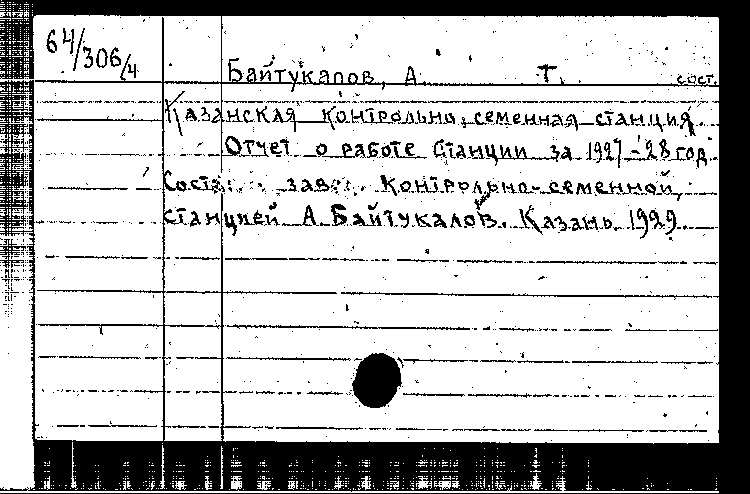 64/306/4
Байтукалов, А. Т. сост.
Казанская контрольно-семенная станция.
Отчет о работе Станции за 1927-28 год.
Сост. зав. Контрольно-семенной,
станцией А. Байтукалов. Казань 1929.